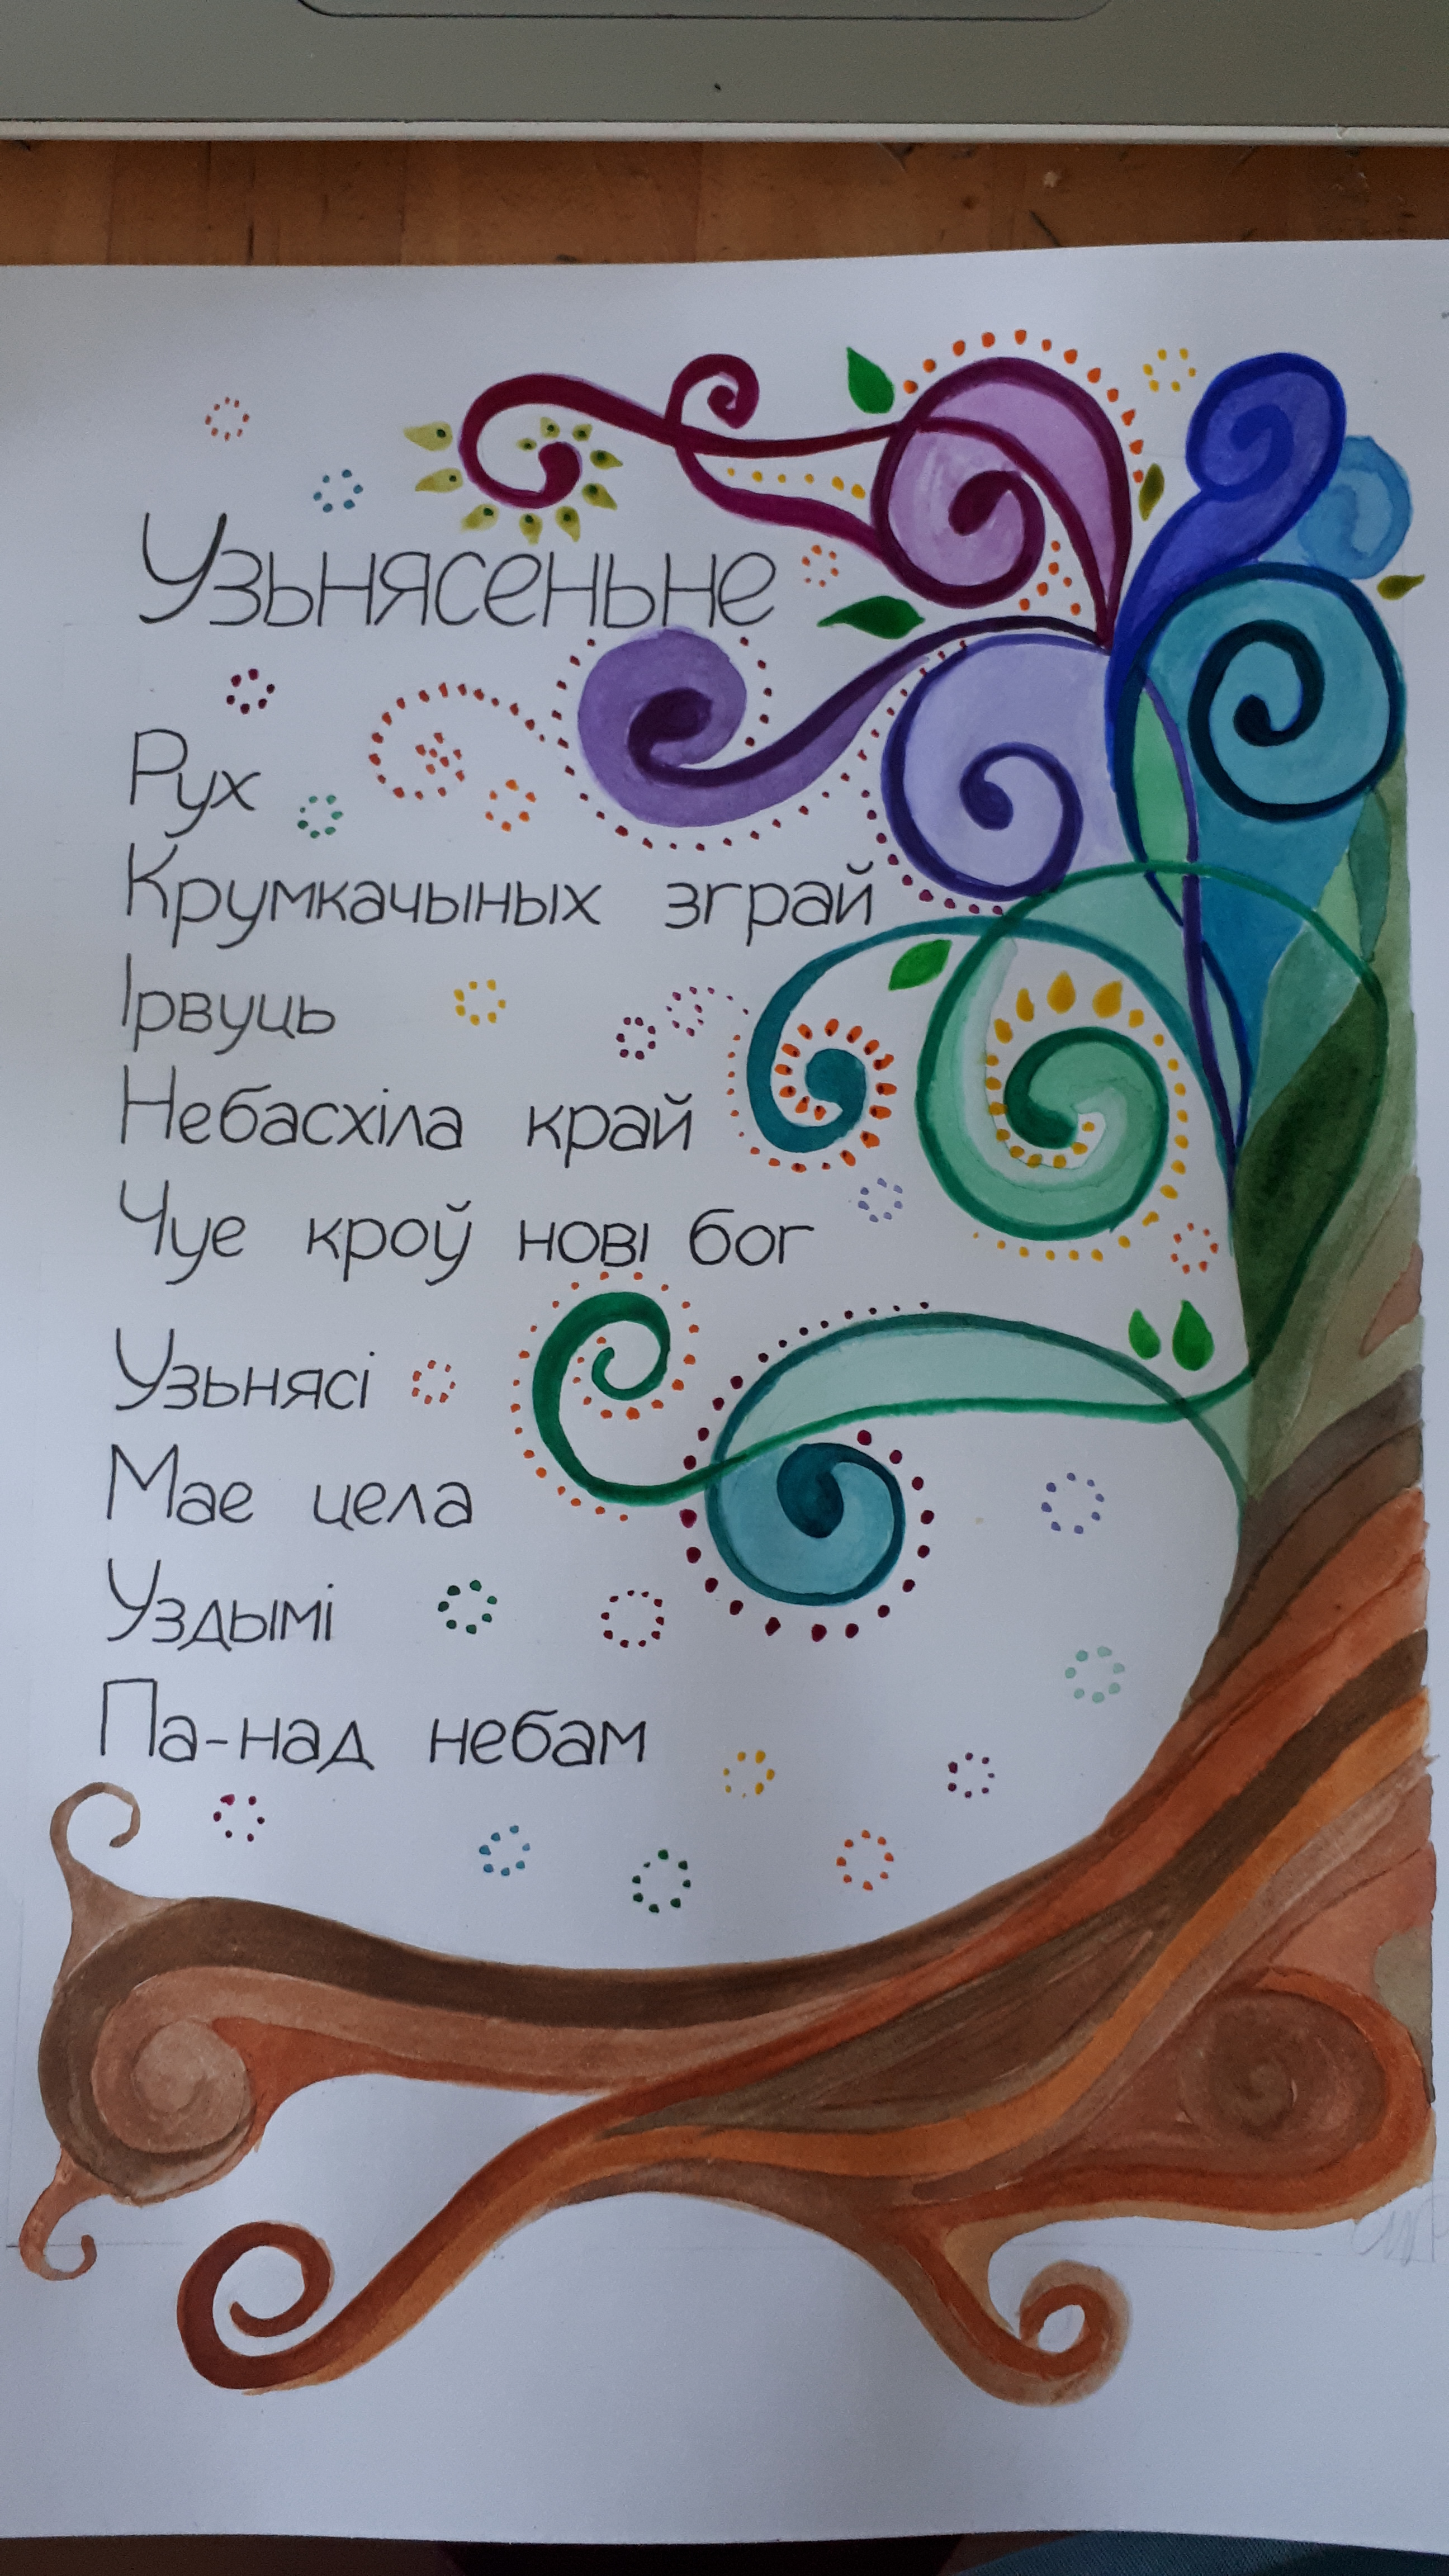 Узьнясеньне
Рух
Крумкачыных зграй
Ірвуць
Небасхіла край
Чуе кроў нові бог
Узьнясі
Мае цела
Уздымі
Па-над небам